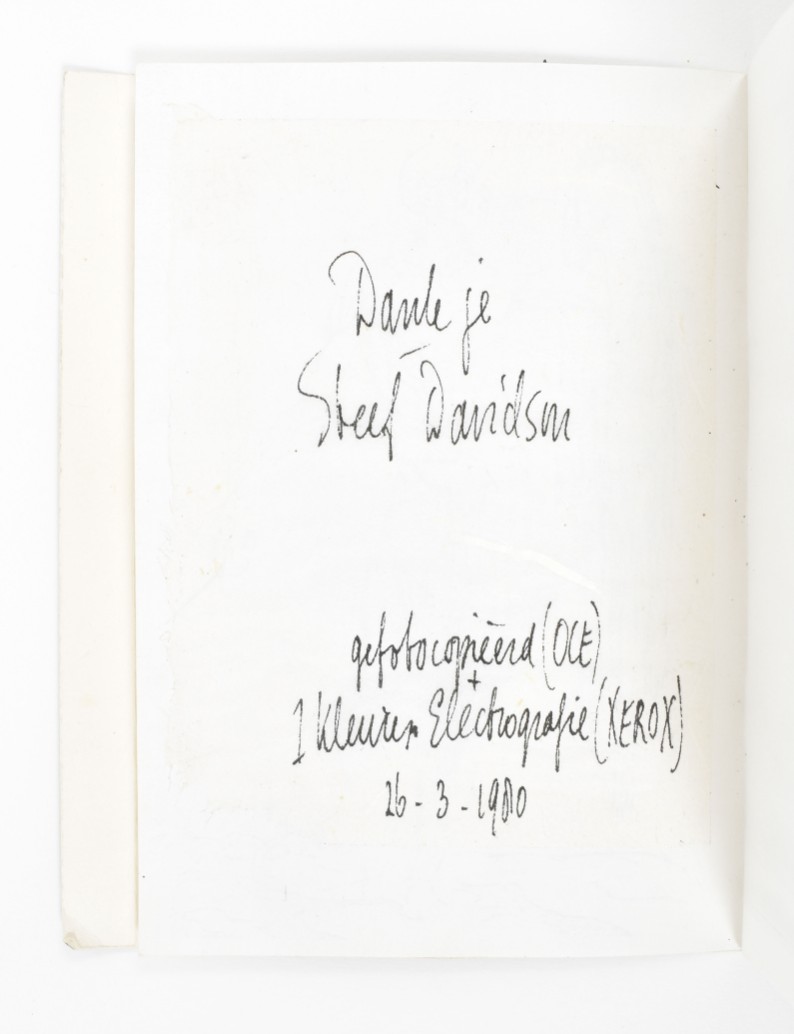 Dank je
Steef Davidson
gefotocopiëerd (OCE)
+
1 Kleuren Electrografie (XEROX)
26-3-1980